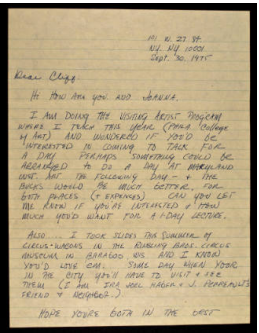 N. 27 St
NY. NY 10001
Sept. 30, 1975
Dear Cliff,
Hi How are you and Joanna.
I am doing the visiting artist program
where I teach this year (Phila. College
of Art) and wondered if you'd be
interested in coming to talk for
a day perhaps something could be
arranged to do a day at Maryland
Inst. Art the following day - & the
bucks would be much better, for
both places (+ expenses). Can you let
me know if you're interested & how
much you'd want for a 1-day lecture.
Also ... I took slides this summer of
circus-wagons in the Ringling Bros. circus
museum in Baraboo, Wis and I know
you'd love em. Some day when your
in the city you'll have to visit & see
them (I am Ira Joel Haber & J. Perreault's
friend & neighbor.)
Hope you're both in the